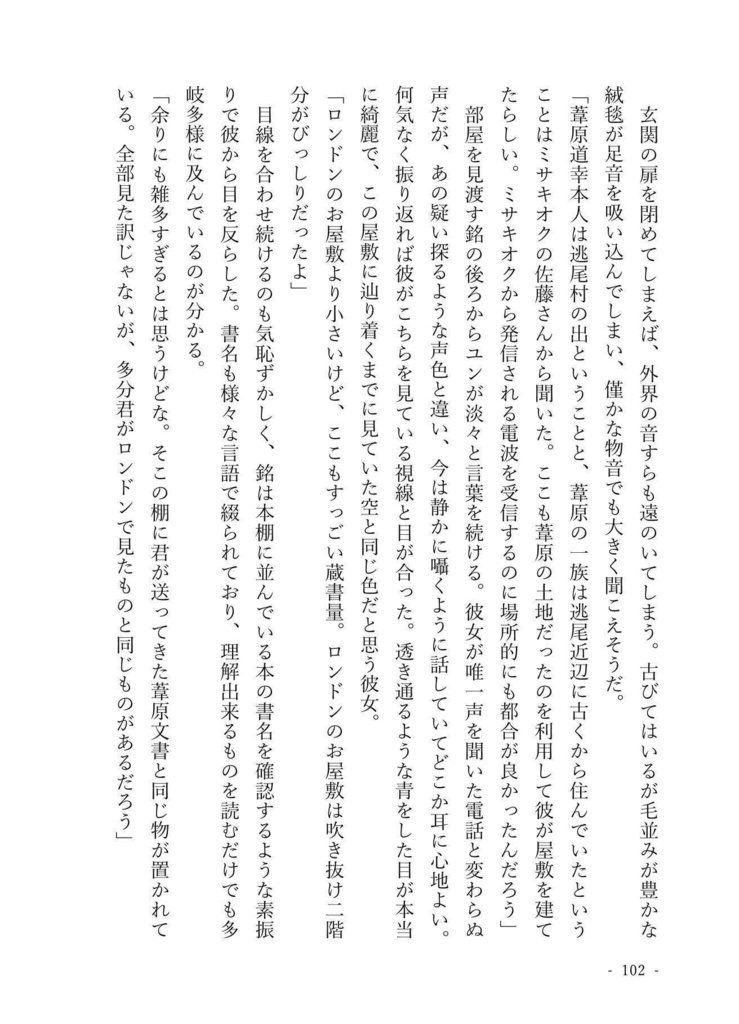 玄関の扉を閉めてしまえば、外界の音すらも遠のいてしまう。古びてはいるが毛並みが豊かな
絨毯が足音を吸い込んでしまい、僅かな物音でも大きく聞こえそうだ。
「葦原道幸本人は逃尾村の出ということと、葦原の一族は逃尾近辺に古くから住んでいたという
ことはミサキオクの佐藤さんから聞いた。ここも葦原の土地だったのを利用して彼が屋敷を建て
たらしい。ミサキオクから発信される電波を受信するのに場所的にも都合が良かったんだろう」
　部屋を見渡す銘の後ろからユンが淡々と言葉を続ける。彼女が唯一声を聞いた電話と変わらぬ
声だが、あの疑い探るような声色と違い、今は静かに囁くように話していてどこか耳に心地よい。
何気なく振り返れば彼がこちらを見ている視線と目が合った。透き通るような青をした目が本当
に綺麗で、この屋敷に辿り着くまでに見ていた空と同じ色だと思う彼女。
「ロンドンのお屋敷より小さいけど、ここもすっごい蔵書量。ロンドンのお屋敷は吹き抜け二階
分がびっしりだったよ」
　目線を合わせ続けるのも気恥ずかしく、銘は本棚に並んでいる本の書名を確認するような素振
りで彼から目を反らした。書名も様々な言語で綴られており、理解出来るものを読むだけでも多
岐多様に及んでいるのが分かる。
「余りにも雑多すぎるとは思うけどな。そこの棚に君が送ってきた葦原文書と同じ物が置かれて
いる。全部見た訳じゃないが、多分君がロンドンで見たものと同じものがあるだろう」
- 102 -